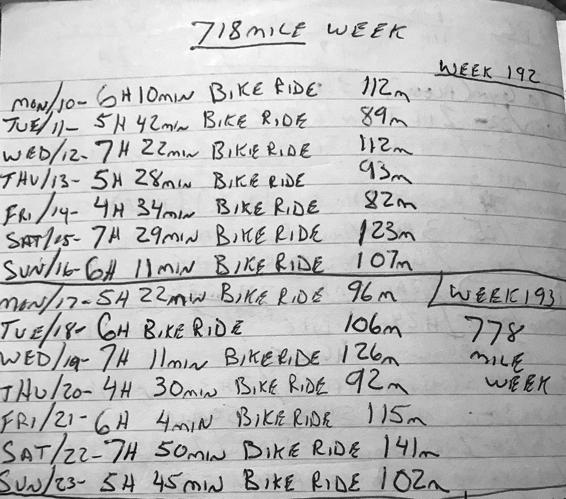 718 MILE WEEK
WEEK 192
MON/10- 6H 10MIN BIKE RIDE 112m
TUE/11- 5H 42MIN BIKE RIDE 89m
WED/12- 7H 22MIN BIKE RIDE 112m
THU/13- 5H 28MIN BIKE RIDE 93m
FRI/14- 4H 34MIN BIKE RIDE 82m
SAT/15- 7H 29MIN BIKE RIDE 123m
SUN/16- 6H 11MIN BIKE RIDE 107m
MON/17- 5H 22MIN BIKE RIDE 96m / WEEK 193
TUE/18- 6H BIKE RIDE 106m 778
WED/19- 7H 11MIN BIKE RIDE 126m MILE
THU/20- 4H 30MIN BIKE RIDE 92m WEEK
FRI/21- 6H 4MIN BIKE RIDE 115m
SAT/22- 7H 50MIN BIKE RIDE 141m
SUN/23- 5H 45MIN BIKE RIDE 102m